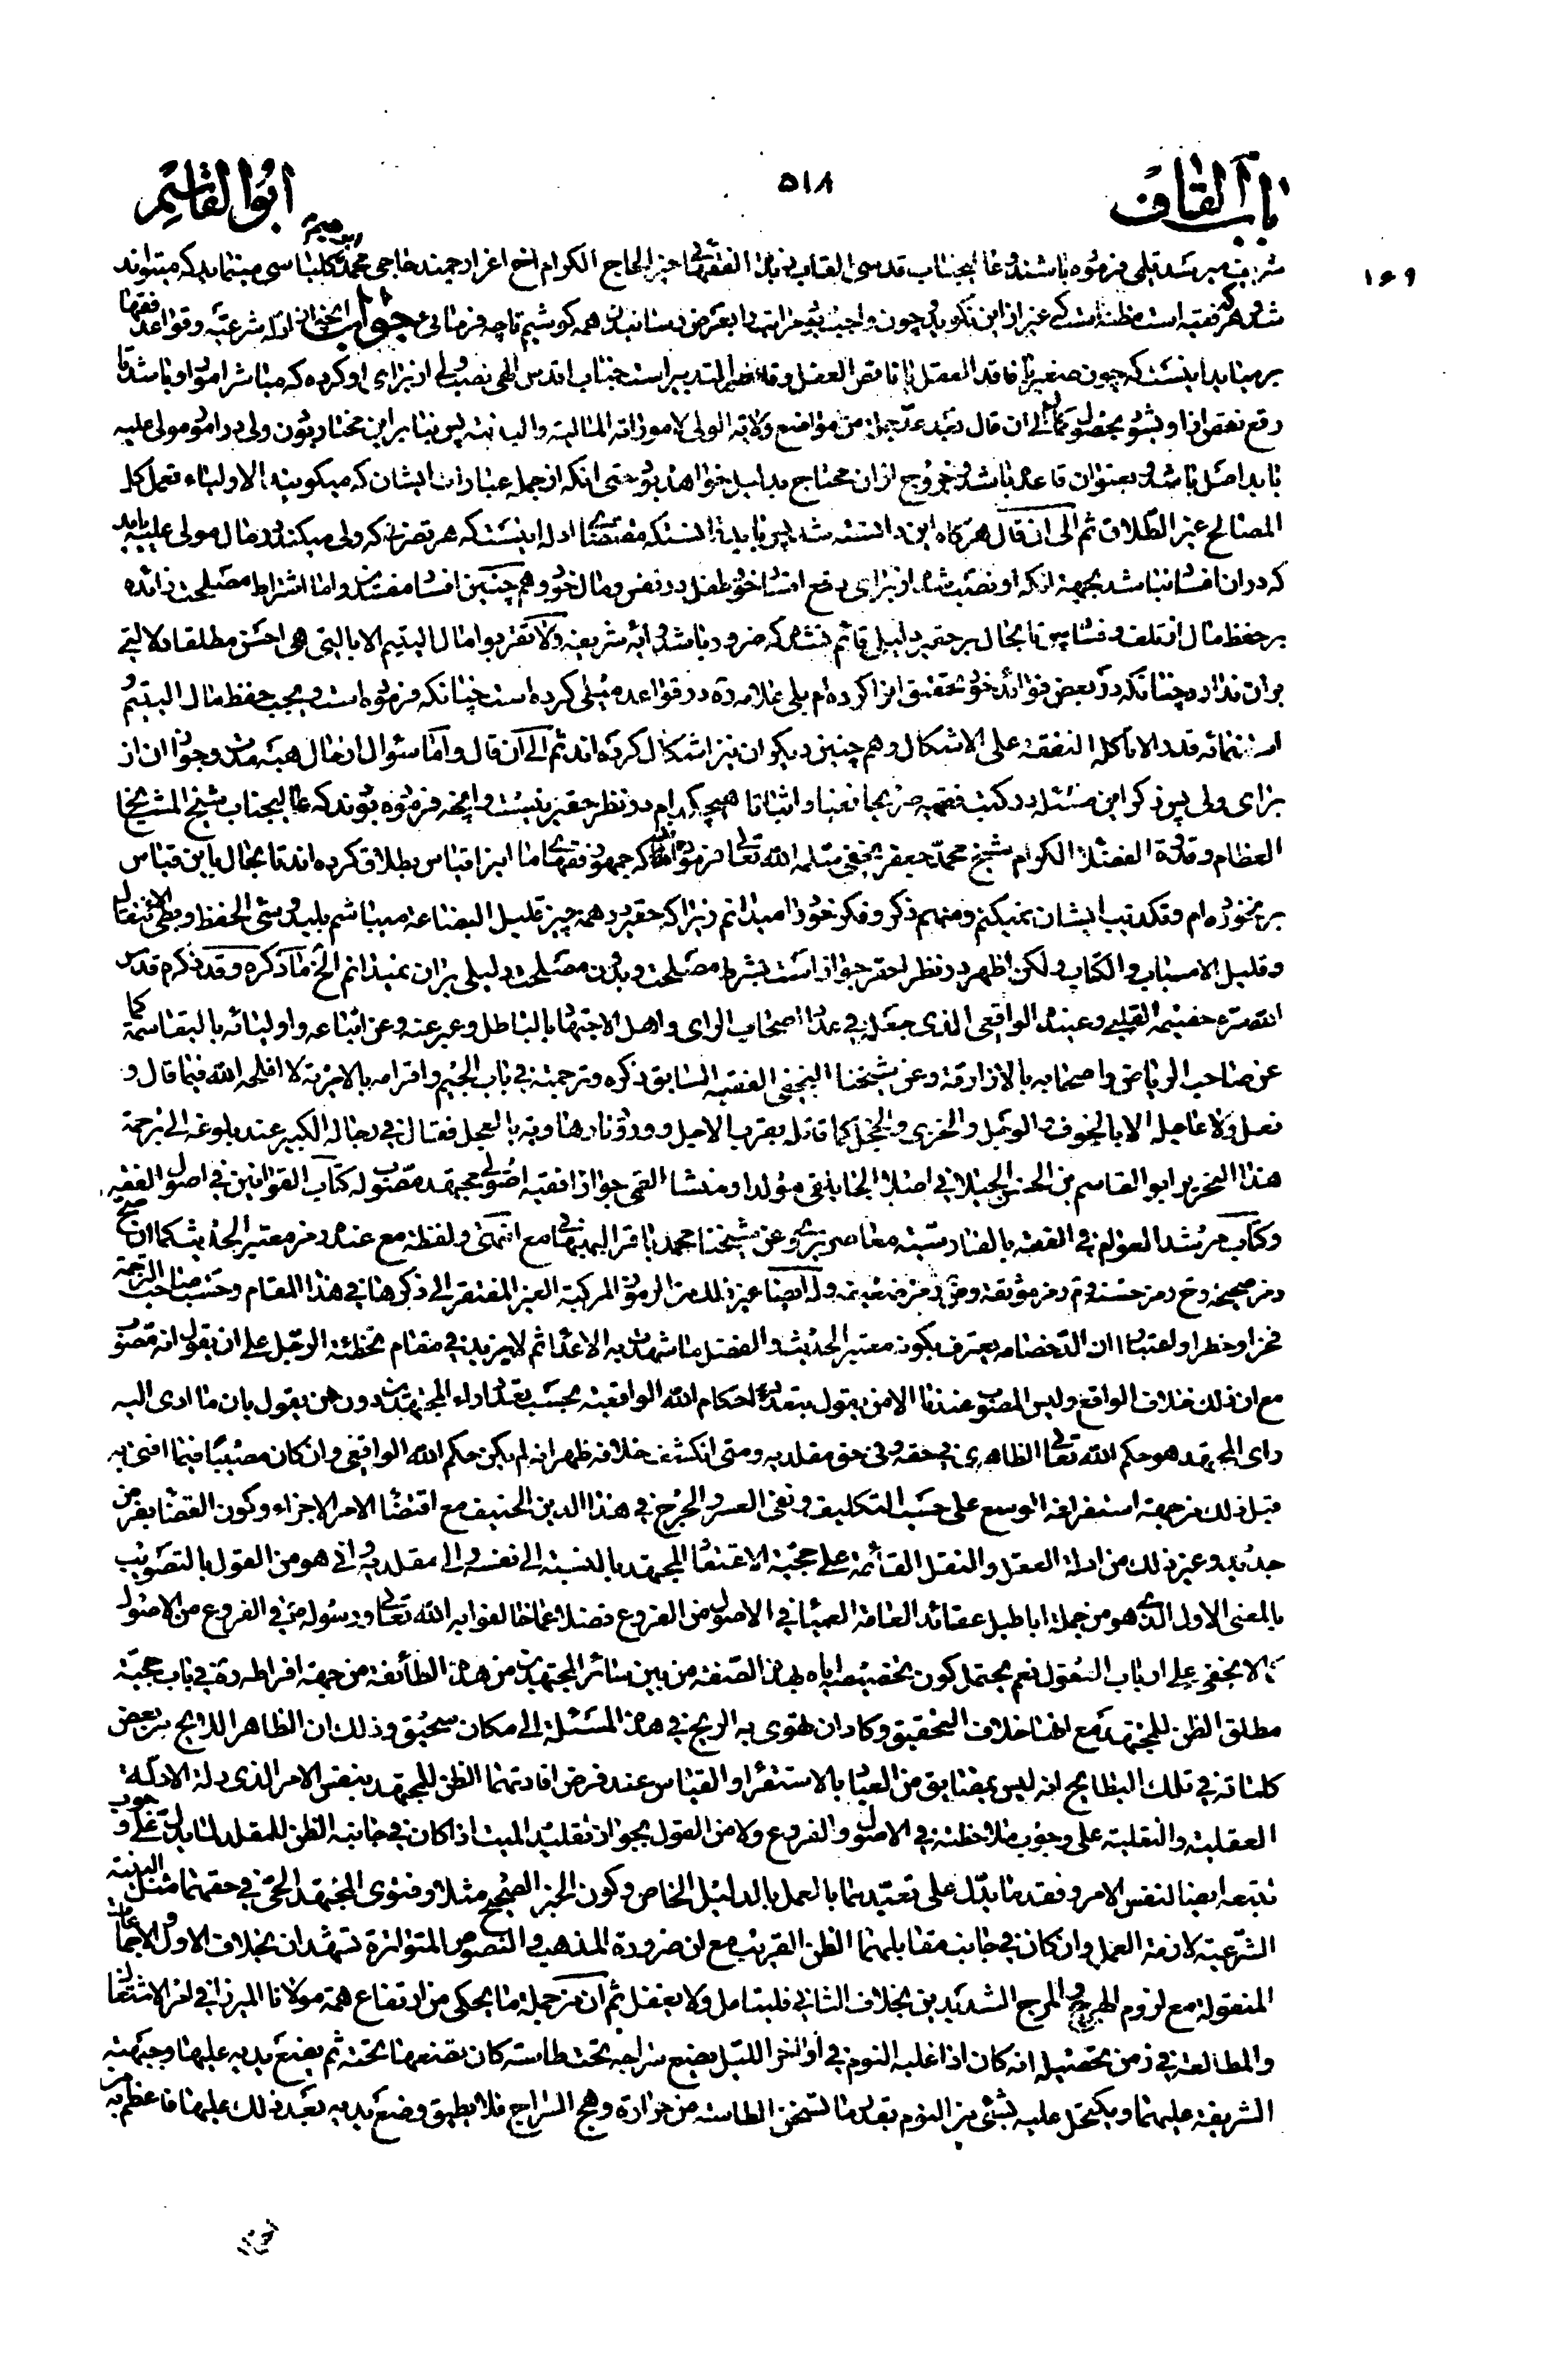 باب القاف
٥١٨
ابو القاسم
١٦٩
شریف میرسد قلمی فرموده باشند و عالیجناب قدسی القاب زبدة الفقهائی خیر الحاج الکرام اخ اعز ارجمند حاجی محمد ابرهیم کلباسی مینماید که میتواند
شد و هر که فقیه است مظنه است که غیر از این نگوید چون واجب بود مراتب را بعرض رسانیدن همه کوشیم تا چه فرمائی جواب آنچه از ادله شرعیه و قواعد فقها
برمیاید اینست که چون صغیر یا فاقد العقل یا ناقص العقل و قاصر التدبیر است جناب اقدس الهی نصب ولی از برای او کرده که مباشر امور او باشد تا
رفع نقص از او بشود بحصول کمال الی ان قال بعد عد جملة من مواضع ولایة الولی لاموراته المالیة والبدنیة پس بنابر این مختار بودن ولی در امور مولی علیه
باید اصل باشد و بعنوان قاعده باشد و خروج از ان محتاج بدلیل خواهد بود حتی انکه از جمله عبارات ایشان که میگویند الاولیاء تعمل کل
المصالح غیر الطلاق ثم الی ان قال هرگاه این دانسته شد پس باید دانست که مقتضای ادله اینست که هر تصرفی که ولی میکند در مال مولی علیه باید
که در ان افساد نباشد بجهة انکه او نصب شده از برای رفع افساد خود طفل در نفس و مال خود و هم چنین افساد مفسدین و اما اشتراط مصلحت زائده
بر حفظ مال از تلف و فساد پس تا بحال بر حقیر دلیلی قائم نشده که ضرور باشد و ایه شریفه ولا تقربوا مال الیتیم الا بالتی هی احسن مطلقا دلالتی
بران ندارد چنانکه در بعض فوائد خود تحقیق انرا کرده ام بلی علامه ره در قواعد میلی کرده است چنانکه فرموده است و یجب حفظ مال الیتیم و
استنمائه قدرا لا تأکله النفقة علی الاشکال و هم چنین دیگران نیز اشکال کرده اند ثم الی ان قال و اما سئوال از حال هبه مدت و جواز ان از
برای ولی پس ذکر این مسئله در کتب فقهیه صریحا نفیا و اثباتا هیچکدام در نظر حقیر نیست و انچه فرموده بودند که عالیجناب شیخ المشایخ
العظام و قدوة الفضلاء الکرام شیخ محمد جعفر نجفی سلمه الله تعالی فرموده اند که جمهور فقهای ما انرا قیاس بطلاق کرده اند تا بحال باین قیاس
بر نخورده ام و تکذیب ایشان نمیکنم و متهم ذکر و فکر خود را میدانم زیرا که حقیر در همه چیز قلیل البضاعه میباشم بلید و سئ الحفظ و بطئ الانتقال
و قلیل الاسباب و الکتاب و لکن اظهر در نظر احقر جواز است بشرط مصلحت و بدون مصلحت دلیلی بران نمیدانم الخ ما ذکره و قد ذکرهم قدس
الله سره خصیمه القلبی و عنیده الواقعی الذی جعله فی عداد اصحاب الرای و اهل الاجتهاد بالباطل و عبر عنه و عن اتباعه و اولیائه بالبقاسمة کما
عن صاحب الریاض و اصحابه بالازارقة و عن شیخنا النجفی الفقیه السابق ذکره و ترجمته فی باب الجیم و اقرانه بالامویة لا افلحه الله فیما قال و
فعل ولا عامله الا بالخوف و الویل و الخزی و الخجل کما قاتله بقرب الاجل و ورود نار هاویة بالعجل فقال فی رجاله الکبیر عند بلوغه الی ترجمة
هذا النحریر ابو القاسم بن الحسن الجیلانی اصلا الجابلقی مولدا و منشا القمی جوارا فقیه اصولی مجتهد مصوب له کتاب القوانین فی اصول الفقه
و کتاب مرشد العوام فی الفقه بالفارسیة معاصر یروی عن شیخنا محمد باقر البهبهانی مع انتهی و لفظة مع عنده رمز معتبر الحدیث کما ان صح
رمز صحیحه و ح رمز حسنه و ق رمز موثقه و ض رمز ضعیفه وله ایضا غیر ذلک من الرموز المرکبة الغیر المفتقر الی ذکرها فی هذا المقام و حسب صاحب الترجمة
فخرا و خطرا و اعتبارا ان الد خصامه یعترف بکونه معتبر الحدیث و الفضل ما شهدت به الاعداء ثم لا یزید فی مقام تخطئة الرجل علی ان یقول انه مصوب
مع ان ذلک خلاف الواقع و لیس المصوب عندنا الا من یقول بتعدد احکام الله الواقعیة بحسب تعدد اراء المجتهدین دون من یقول بان ما ادی الیه
رای المجتهد هو حکم الله تعالی الظاهری فی حقه و فی حق مقلدیه و متی انکشف خلافه ظهر انه لم یکن حکم الله الواقعی و ان کان مصیبا فیما افتی به
قبل ذلک من جهة استفراغه الوسع علی حسب التکلیف و نفی العسر و الحرج فی هذا الدین الحنیف مع اقتضاء الامر الاجزاء و کون القضاء بفرض
جدید و غیر ذلک من ادلة العقل و النقل القائمة علی حجیة الاعتقاد للمجتهد بالنسبة الی نفسه و الی مقلدیه و انی هو من القول بالتصویب
بالمعنی الاول الذی هو من جملة اباطیل عقائد العامة العمیاء فی الاصول من الفروع فضلا عما خالفوا به الله تعالی و رسوله ص فی الفروع من الاصول
کما لا یخفی علی ارباب العقول نعم یحتمل کون تخصیصه ایاه بهذه الصفة من بین سائر المجتهدین من هذه الطائفة من جهة افراطه ره فی باب حجیة
مطلق الظن للمجتهد مع انها خلاف التحقیق و کاد ان تهوی به الریح فی هذه المسئلة الی مکان سحیق و ذلک ان الظاهر اللائح من بعض
کلماته فی تلک المطاویح انه لیس بمضایق من العمل بالاستقراء و القیاس عند فرض افادتهما الظن للمجتهد بنفس الامر الذی دلت الادلة
العقلیة و النقلیة علی وجوب ملاحظته فی الاصول و الفروع ولا من القول بجواز تقلید المیت اذا کان فی جانبه الظن للمقلد لما یدل علی وجوب
تتبعه ایضا لنفس الامر و فقد ما یدل علی تعبدیهما بالعمل بالدلیل الخاص و کون الخبر الصحیح مثلا و فتوی المجتهد الحی فی حقهما مثل البینة
الشرعیة لازمة العمل و ان کان فی جانب مقابلهما الظن القریب مع ان ضرورة المذهب و النصوص المتواترة تشهدان بخلاف الاول و الاجماعات
المنقولة مع لزوم الهرج و المرج الشدیدین بخلاف الثانی فلیتامل ولا یغفل ثم ان من جملة ما یحکی من ارتفاع همة مولانا المیرزا فی امر الاشتغال
و المطالعة فی زمن تحصیله انه کان اذا غلبه النوم فی اواخر اللیل یضع سراجه تحت طاسته کان یضعها تحته ثم یضع یدیه علیها و جبهته
الشریفة علیهما و یکتحل علیه بشئ من النوم بقدر ما تسخن الطاسة من حرارة وهج السراج فلا یطیق وضع یدیه بعد ذلک علیها فاعظم به من